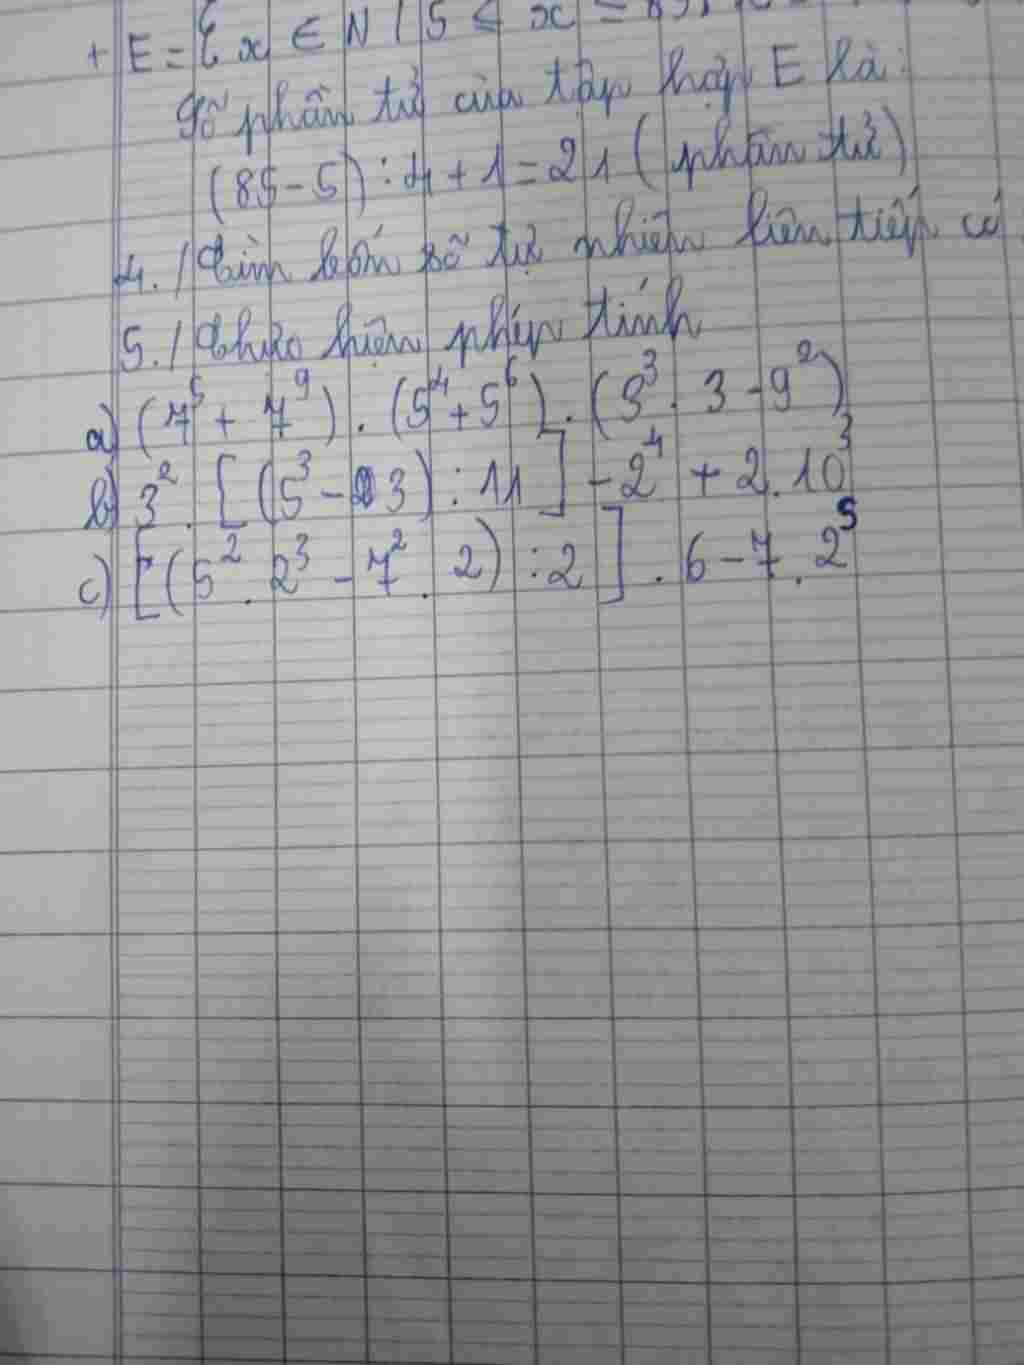 + E = { x ∈ N / 5 ≤ x ≤ 85,
Số phần tử của tập hợp E là:
(85 - 5) : 4 + 1 = 21 (phần tử)
4./ Tìm bốn số tự nhiên liên tiếp có
5./ Thực hiện phép tính
a) (7⁵ + 7⁹) . (5⁴ + 5⁶) . (3³ . 3 - 9²)
b) 3² . [(5³ - 3) : 11] - 2⁴ + 2 . 10³
c) [(5² . 2³ - 7² . 2) : 2] . 6 - 7 . 2⁵